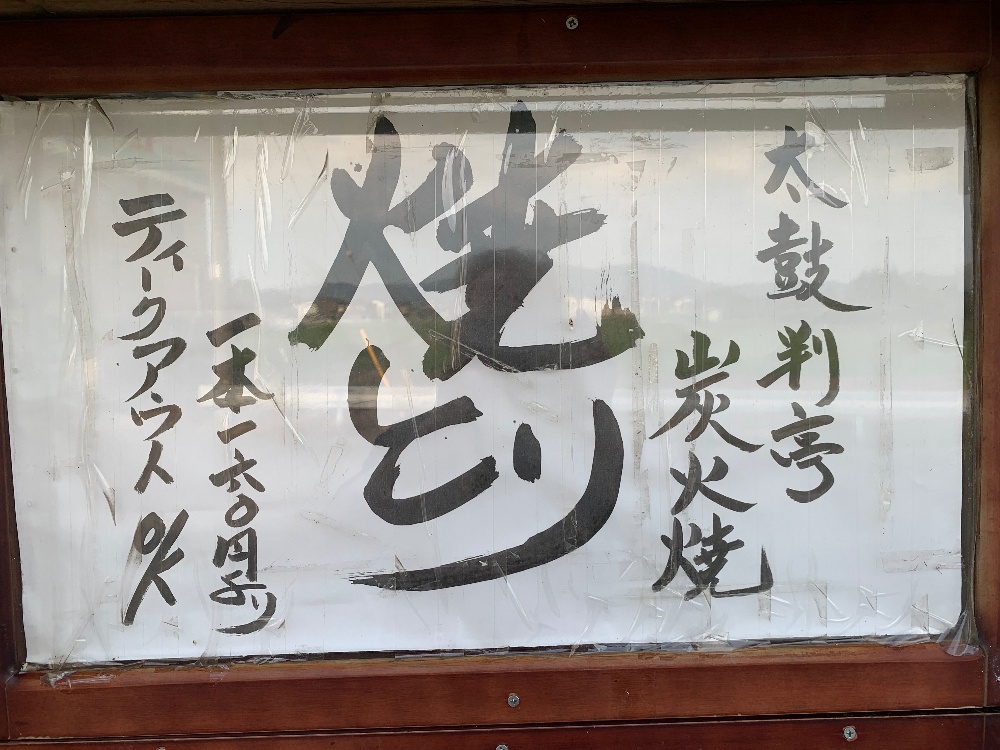 太鼓判亭
炭火焼
焼とり
一本一六〇円より
ティークアウト OK